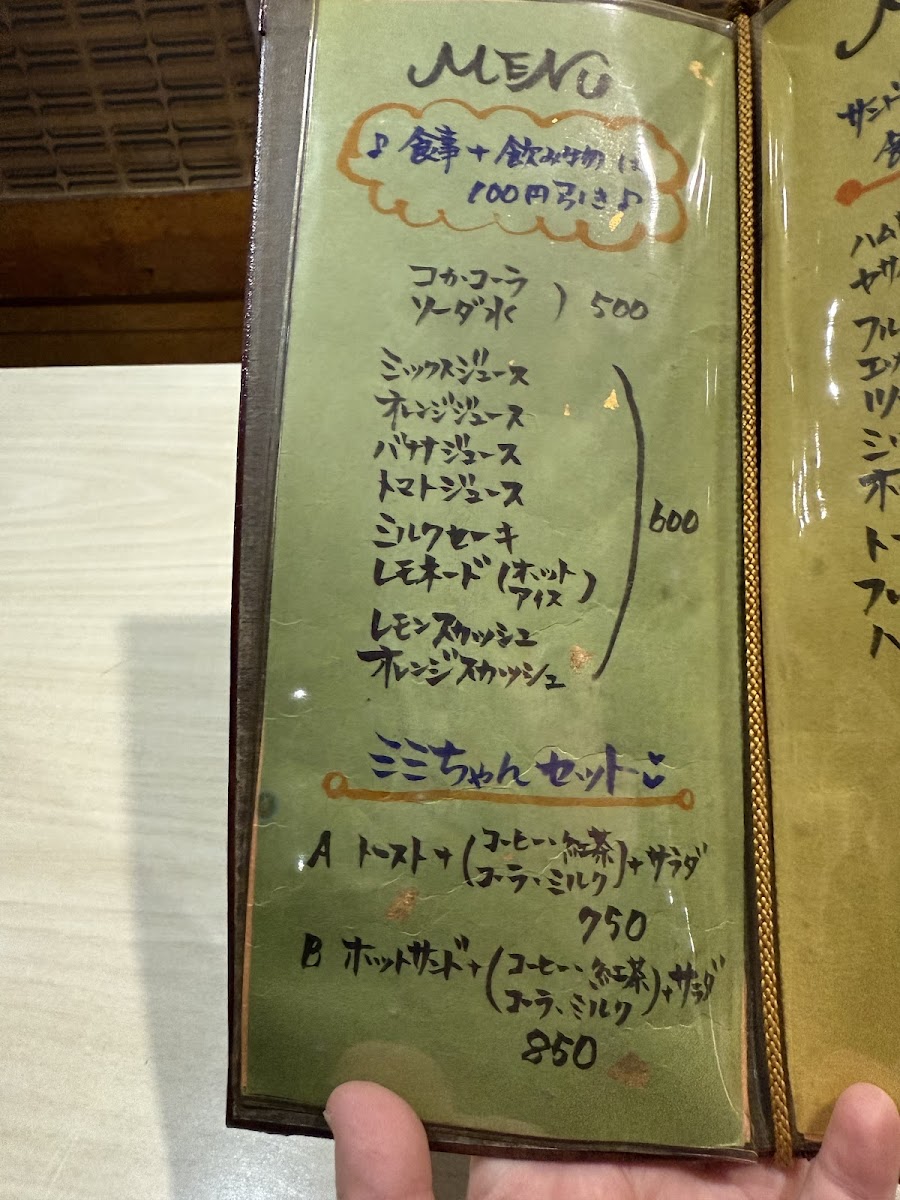 MENU
♪食事+飲み物は
100円引き♪
コカ・コーラ
ソーダ水 ) 500
ミックスジュース
オレンジジュース
バナナジュース
トマトジュース
ミルクセーキ
レモネード(ホット
アイス)
レモンスカッシュ
オレンジスカッシュ
600
ミミちゃんセット♡
A トースト+(コーヒー、紅茶
コーラ、ミルク)+サラダ
750
B ホットサンド+(コーヒー、紅茶
コーラ、ミルク)+サラダ
850
サンド
ハム
ヤサ
フル
ツナ
ミッ
ホッ
トー
フレ
ハ